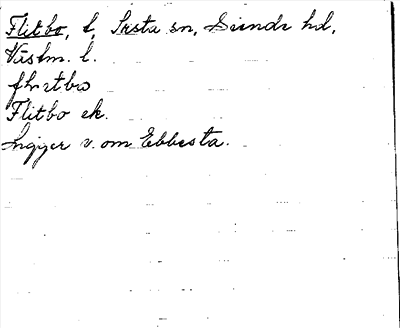 Flitbo, t, Irsta sn, Siende hd,
Västm. l.
flıtbω
Flitbo ek.
Ligger v. om Ebbesta.